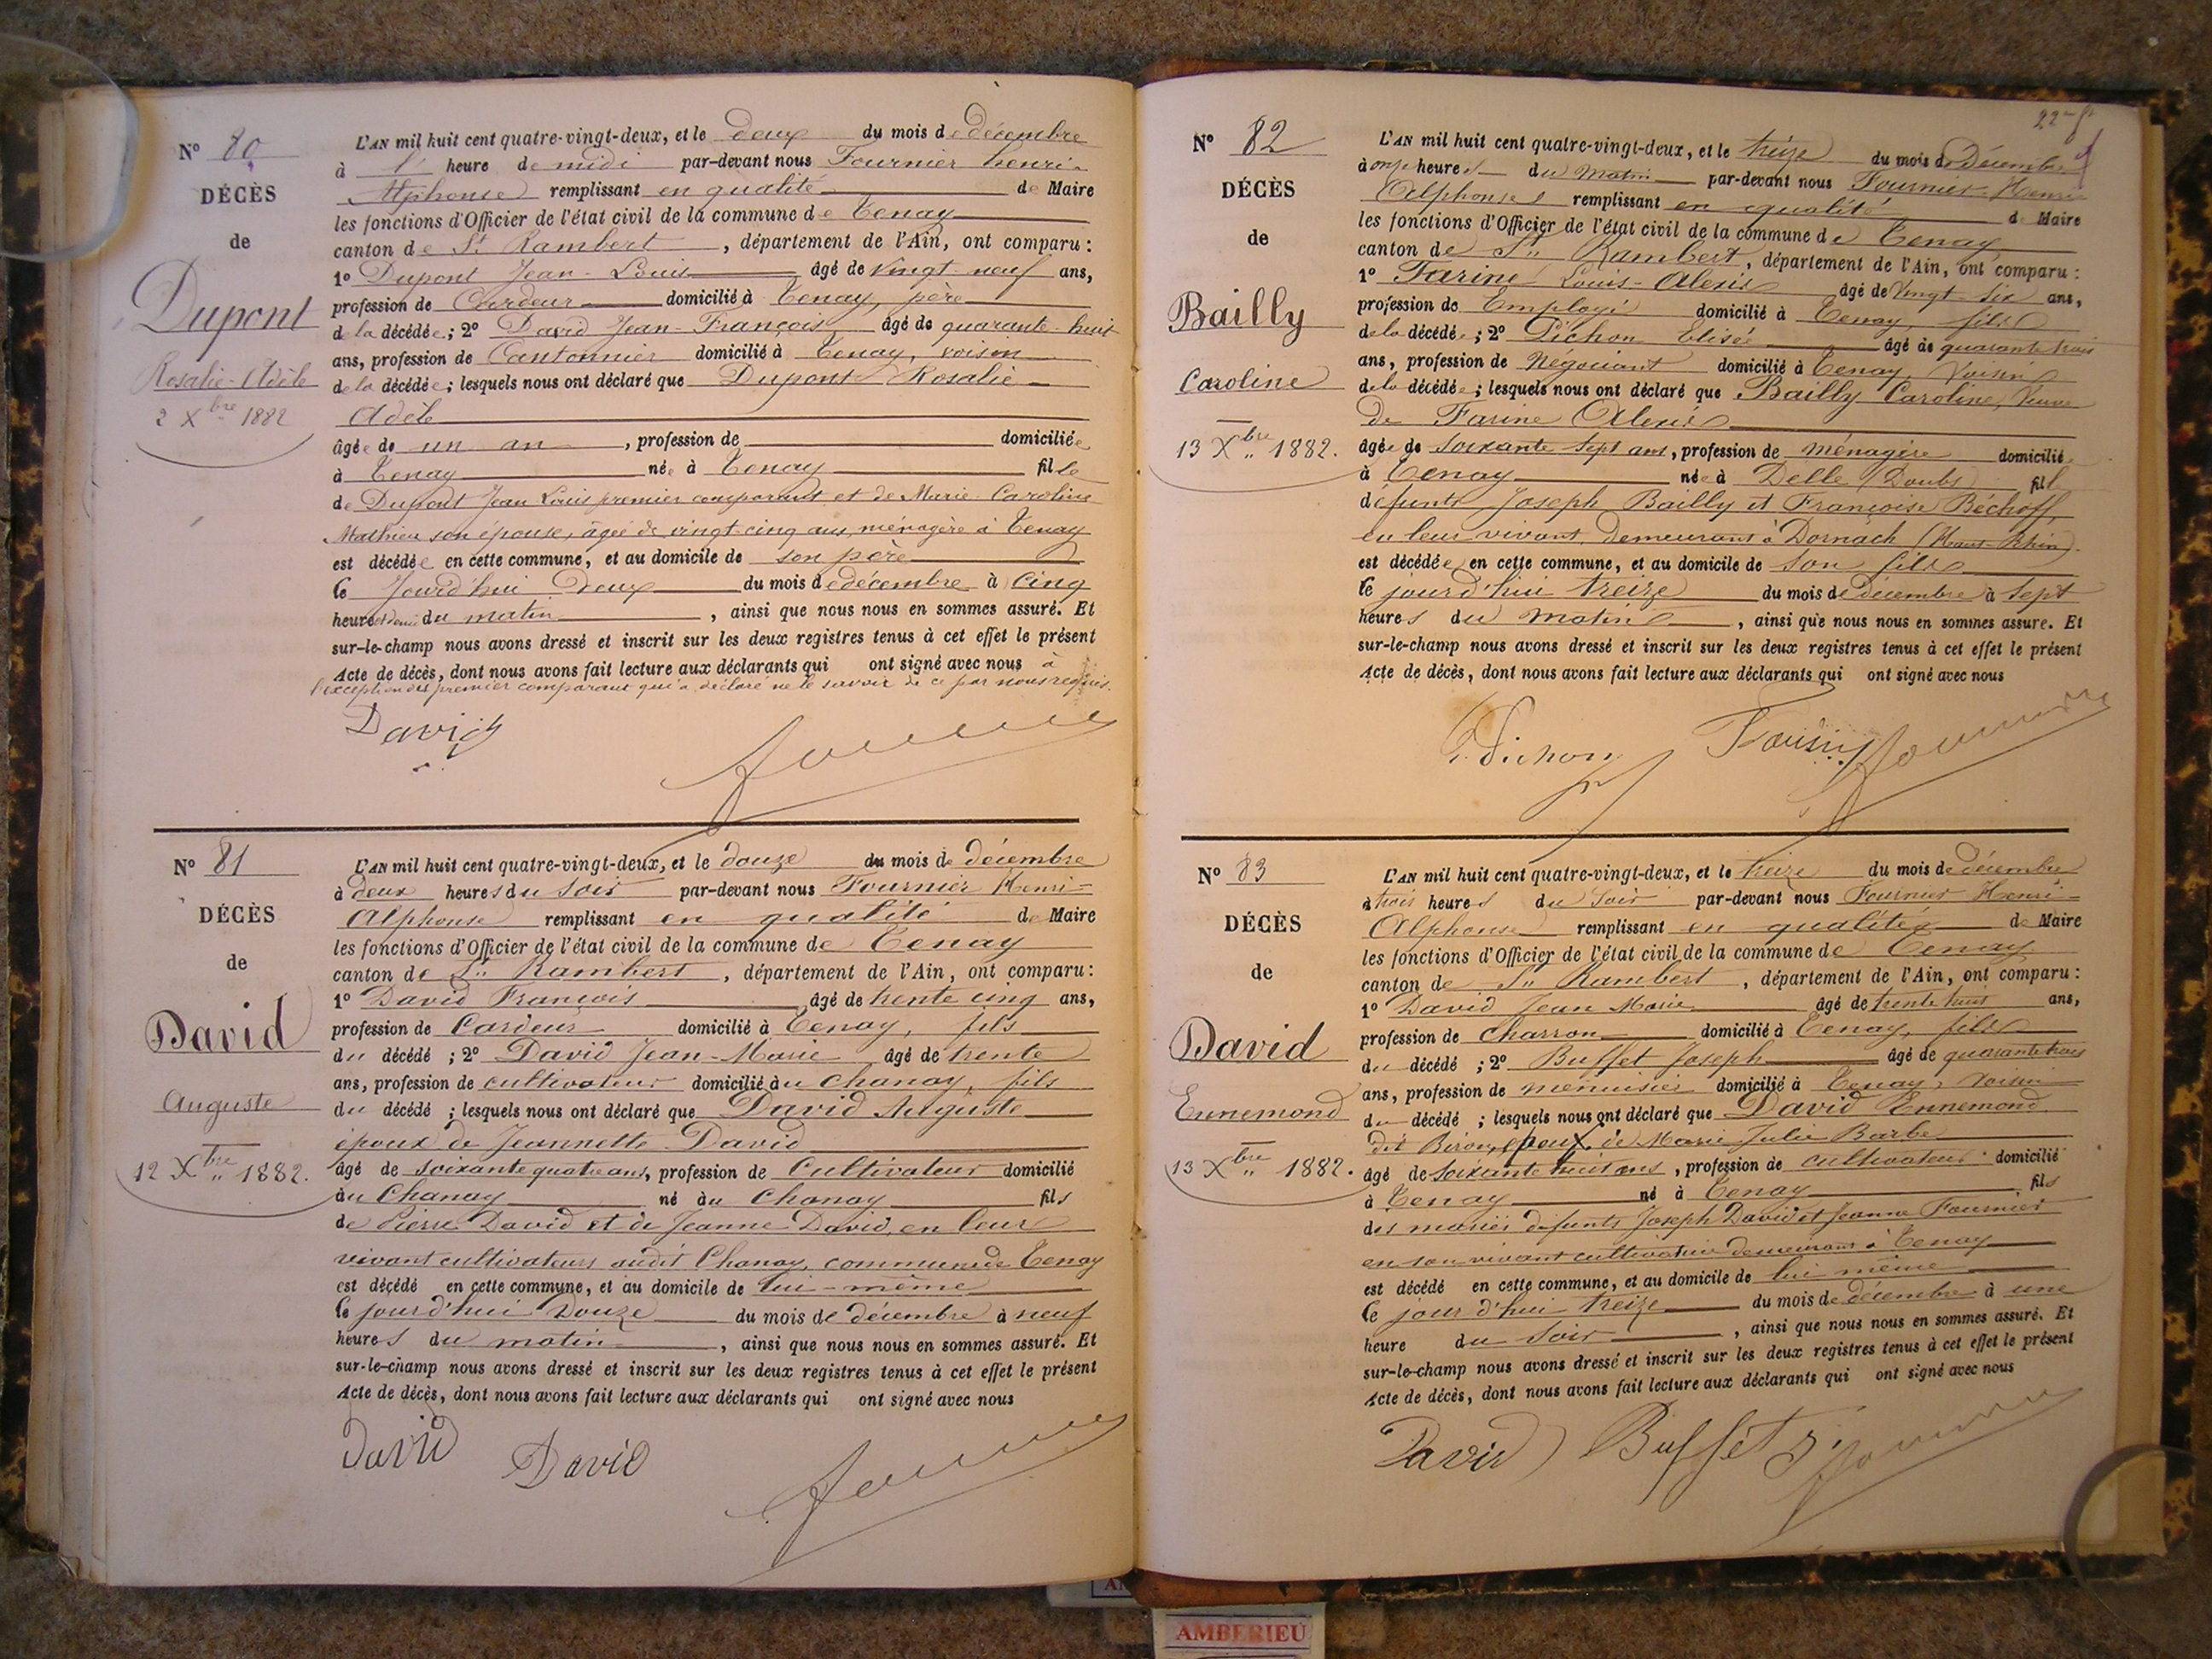 N° 80
DÉCÈS
de
Dupont
Rosalie-Adèle
2 Xbre 1882
L'AN mil huit cent quatre-vingt-deux, et le deux du mois de décembre
à l' heure de midi par-devant nous Fournier henri-
Alphonse remplissant en qualité de Maire
les fonctions d'Officier de l'état civil de la commune de Tenay
canton de St Rambert, département de l'Ain, ont comparu :
1° Dupont Jean-Louis âgé de vingt-neuf ans,
profession de Cardeur domicilié à Tenay, père
de la décédée ; 2° David Jean-François âgé de quarante-huit
ans, profession de Cantonnier domicilié à Tenay, voisin
de la décédée ; lesquels nous ont déclaré que Dupont Rosalie
Adèle
âgée de un an, profession de domiciliée
à Tenay née à Tenay fille
de Dupont Jean Louis premier comparant et de Marie Caroline
Mathieu son épouse, âgée de vingt-cinq ans, ménagère à Tenay
est décédée en cette commune, et au domicile de son père
le Jourd'hui Deux du mois de décembre à Cinq
heures et demie du matin, ainsi que nous nous en sommes assuré. Et
sur-le-champ nous avons dressé et inscrit sur les deux registres tenus à cet effet le présent
Acte de décès, dont nous avons fait lecture aux déclarants qui ont signé avec nous à
l'exception du premier comparant qui a déclaré ne le savoir de ce par nous requis.
David
N° 81
DÉCÈS
de
David
Auguste
12 Xbre 1882.
L'AN mil huit cent quatre-vingt-deux, et le douze du mois de décembre
à deux heures du soir par-devant nous Fournier Henri-
Alphonse remplissant en qualité de Maire
les fonctions d'Officier de l'état civil de la commune de Tenay
canton de St Rambert, département de l'Ain, ont comparu :
1° David François âgé de trente cinq ans,
profession de Cardeur domicilié à Tenay, fils
du décédé ; 2° David Jean-Marie âgé de trente
ans, profession de cultivateur domicilié au Chanay, fils
du décédé ; lesquels nous ont déclaré que David Auguste
époux de Jeannette David
âgé de soixante quatre ans, profession de Cultivateur domicilié
au Chanay né au Chanay fils
de Pierre David et de Jeanne David, en leur
vivant cultivateurs audit Chanay, commune de Tenay
est décédé en cette commune, et au domicile de lui-même
le jourd'hui Douze du mois de décembre à neuf
heures du matin, ainsi que nous nous en sommes assuré. Et
sur-le-champ nous avons dressé et inscrit sur les deux registres tenus à cet effet le présent
Acte de décès, dont nous avons fait lecture aux déclarants qui ont signé avec nous
David David
N° 82
DÉCÈS
de
Bailly
Caroline
13 Xbre 1882.
L'AN mil huit cent quatre-vingt-deux, et le treize du mois de Décembre
à onze heures du matin par-devant nous Fournier Henri
Alphonse remplissant en qualité de Maire
les fonctions d'Officier de l'état civil de la commune de Tenay
canton de St Rambert, département de l'Ain, ont comparu :
1° Farine Louis-Alexis âgé de Vingt-six ans,
profession de Employé domicilié à Tenay, fils
de la décédée ; 2° Pichon Elisée âgé de quarante trois
ans, profession de Négociant domicilié à Tenay, Voisin
de la décédée ; lesquels nous ont déclaré que Bailly Caroline, Veuve
de Farine Alexis
âgée de soixante sept ans, profession de ménagère domiciliée
à Tenay née à Delle (Doubs) fille
défunts Joseph Bailly et Françoise Béchoff,
en leur vivant, demeurant à Dornach (Haut-Rhin).
est décédée en cette commune, et au domicile de son fils
le jourd'hui treize du mois de décembre à sept
heures du matin, ainsi que nous nous en sommes assuré. Et
sur-le-champ nous avons dressé et inscrit sur les deux registres tenus à cet effet le présent
Acte de décès, dont nous avons fait lecture aux déclarants qui ont signé avec nous
Pichon
N° 83
DÉCÈS
de
David
Ennemond
13 Xbre 1882.
L'AN mil huit cent quatre-vingt-deux, et le treize du mois de décembre
à trois heures du soir par-devant nous Fournier Henri-
Alphonse remplissant en qualité de Maire
les fonctions d'Officier de l'état civil de la commune de Tenay
canton de St Rambert, département de l'Ain, ont comparu :
1° David Jean Marie âgé de trente trois ans,
profession de Charron domicilié à Tenay, fils
du décédé ; 2° Buffet Joseph âgé de quarante trois
ans, profession de menuisier domicilié à Tenay, Voisin
du décédé ; lesquels nous ont déclaré que David Ennemond
dit époux de Marie Julie Barbe
âgé de soixante huit ans, profession de cultivateur domicilié
à Tenay né à Tenay fils
des mariés défunts Joseph David et Jeanne Fournier
en son vivant cultivateur demeurant à Tenay
est décédé en cette commune, et au domicile de lui même
le jourd'hui treize du mois de décembre à une
heure du soir, ainsi que nous nous en sommes assuré. Et
sur-le-champ nous avons dressé et inscrit sur les deux registres tenus à cet effet le présent
Acte de décès, dont nous avons fait lecture aux déclarants qui ont signé avec nous
David Buffet
AMBERIEU